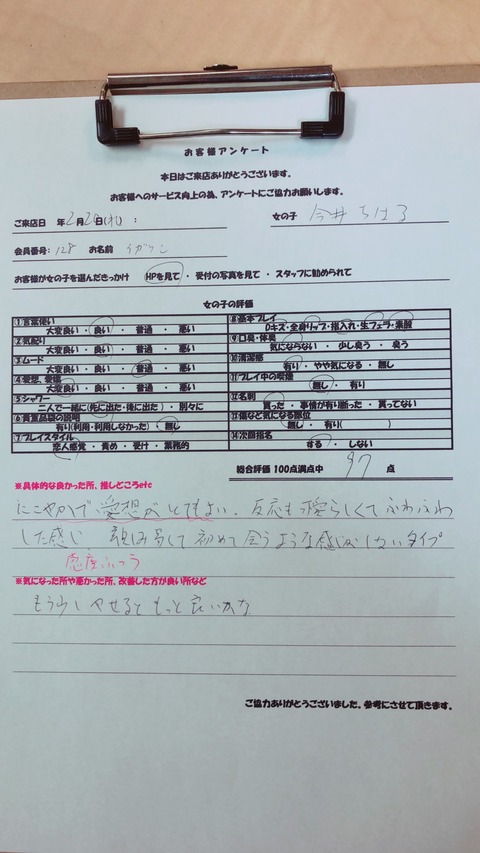 お客様アンケート
本日はご来店ありがとうございます。
お客様へのサービス向上の為、アンケートにご協力お願いします。
ご来店日 年 2月 20日(札) : 女の子 今井ちはる
会員番号: 128 お名前
お客様が女の子を選んだきっかけ HPを見て ・ 受付の写真を見て ・ スタッフに勧められて
女の子の評価
①言葉使い
大変良い ・ 良い ・ 普通 ・ 悪い
2.気配り
大変良い ・ 良い ・ 普通 ・ 悪い
3.ムード
大変良い ・ 良い ・ 普通 ・ 悪い
4.愛想、愛嬌
大変良い ・ 良い ・ 普通 ・ 悪い
5.シャワー
二人で一緒に(先に出た・後に出た) ・ 別々に
6.貴重品袋の説明
有り(利用・利用しなかった) ・ 無し
7.プレイスタイル
恋人感覚 ・ 責め ・ 受け ・ 業務的
⑧基本プレイ
Dキス・全身リップ・指入れ・生フェラ・素股
⑨口臭・体臭
気にならない ・ 少し臭う ・ 臭う
⑩清潔感
有り ・ やや気になる ・ 無し
⑪プレイ中の喫煙
無し ・ 有り
⑫名刺
貰った ・ 事情が有り断った ・ 貰ってない
⑬傷など気になる部位
無し ・ 有り( )
⑭次回指名
する ・ しない
総合評価 100点満点中 97 点
※具体的な良かった所、推しどころetc
にこやかで愛想がとてもよい。反応も愛らしくてふわふわ
した感じ 親しみ易くて初めて会うような感じがしないタイプ
感度ふつう
※気になった所や悪かった所、改善した方が良い所など
もう少しやせるともっと良いかな
ご協力ありがとうございました。参考にさせて頂きます。